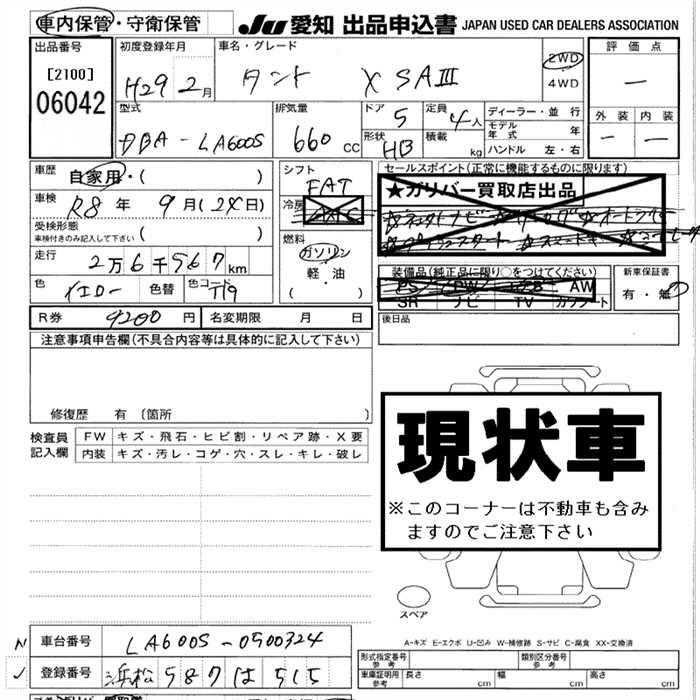 車内保管・守衛保管 JU 愛知 出品申込書 JAPAN USED CAR DEALERS ASSOCIATION
出品番号 初度登録年月 車名・グレード 2WD 評価点
[2100] H29 2月 タント X SAⅢ ・ ー
06042 4WD
型式 排気量 ドア 5 定員 4人 ディーラー・並行 外装 内装
DBA-LA600S 660 CC 形状 HB 積載 kg モデル年式 年 ー ー
ハンドル 左・右
車歴 自家用・( ) シフト FAT セールスポイント(正常に機能するものに限ります)
車検 R8年 9月(24日) 冷房 ★ガリバー買取店出品
受検形態 車検付きのみ記入して下さい ( )
走行 2万6千567km 燃料 ガソリン
軽・油
( )
装備品(純正品に限り○をつけてください) 新車保証書
色 イエロー 色替 色コード PS PW エアB AW 有・無
SR ナビ TV カワシート
R券 9200円 名変期限 月 日 後日品
注意事項申告欄(不具合内容等は具体的に記入して下さい)
修復歴 有 〔箇所 〕
検査員 FW キズ・飛石・ヒビ割・リペア跡・X要
記入欄 内装 キズ・汚レ・コゲ・穴・スレ・キレ・破レ
現状車
※このコーナーは不動車も含み
ますのでご注意下さい
スペア
A-キズ E-エクボ U-凹み W-補修跡 S-サビ C-腐食 XX-交換済
N 車台番号 LA600S-0500324
✓ 登録番号 浜松 587 は 515
形式指定番号 参考 類別区分番号 参考
車庫証明用 参考 長さ cm 幅 cm 高さ cm